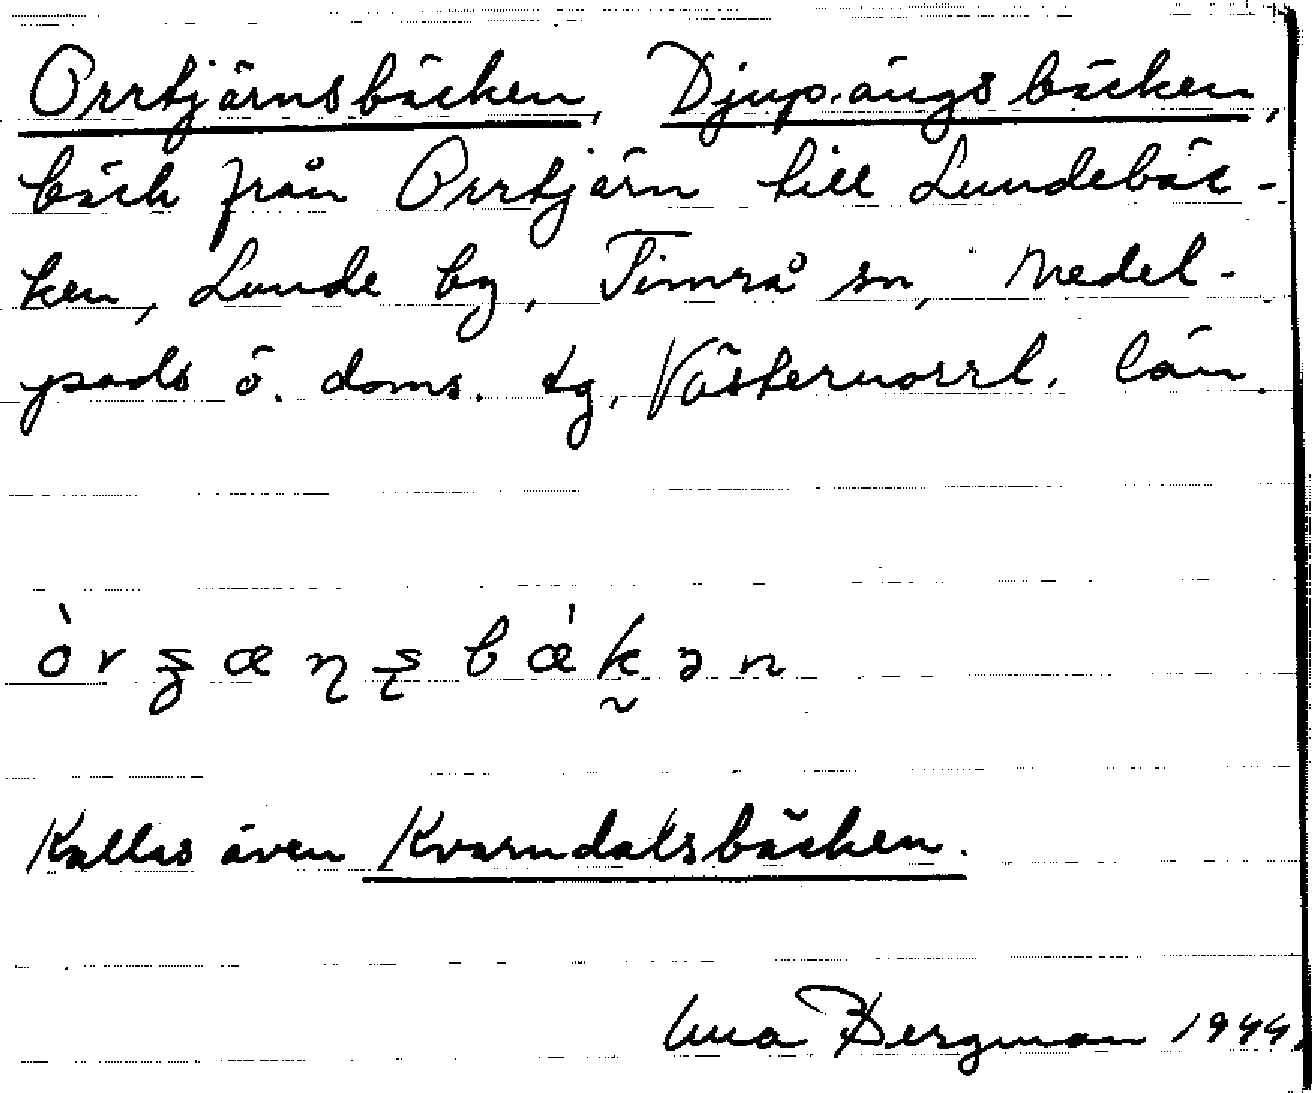 Orrtjärnsbäcken, Djupängsbäcken,
bäck från Orrtjärn till Lundebäc-
ken, Lunde by, Timrå sn, Medel-
pads ö. doms. tg, Västernorrl. län.
Kallas även Kvarndalsbäcken.
Bergman 1944.